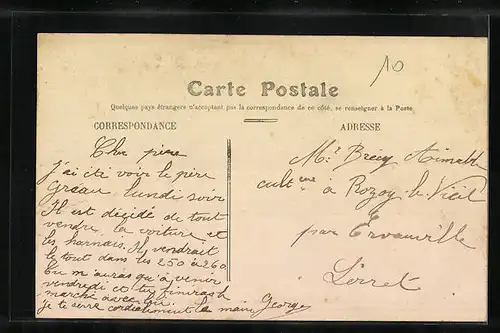 10
Carte Postale
Quelques pays étrangers n'acceptant pas la correspondance de ce côté, se renseigner à la Poste
CORRESPONDANCE
Cher père
j'ai été voir le père
Greau lundi soir
Il est décidé de tout
vendre, la voiture et
les harnais. Il vendrait
le tout dans les 250 à 260
tu m'auras qu'à venir
vendredi et tu finiras le
marché avec lui.
je te serre cordialement la main Georges
ADRESSE
Mr Brécy Aimable
cult
à Rozoy-le-Vieil
par Ervauville
Loiret